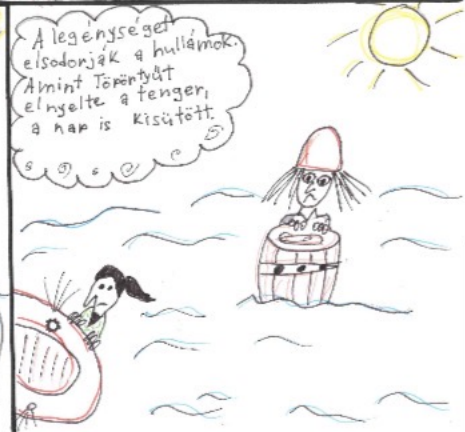 A legénységet
elsodorják a hullámok.
Amint Töpörtyűt
elnyelte a tenger,
a nap is kisütött.